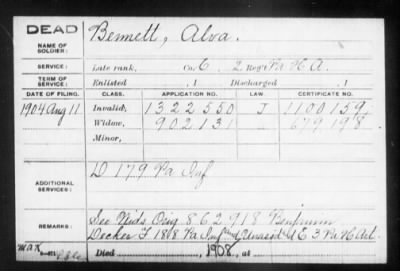 DEAD
NAME OF SOLDIER:
Bennett, Alva.
SERVICE:
Late rank, Co. C, 2 Reg't Pa H.A.
TERM OF SERVICE:
Enlisted , 1 Discharged , 1
DATE OF FILING. CLASS. APPLICATION NO. LAW. CERTIFICATE NO.
1904 Aug 11 Invalid, 1322550 J 1100159,
Widow, 902131 679198.
Minor,
ADDITIONAL SERVICES:
D 179 Pa Inf
REMARKS:
See Wid's Orig 862918 Benjamin
Decker F 188 Pa Inf and Unass'd & E 3 Pa H Art.
Died , 1908, at